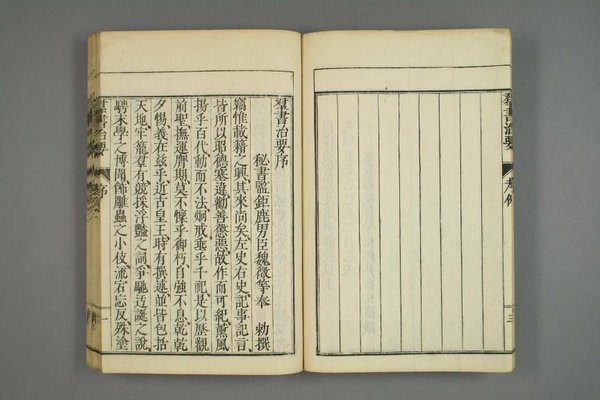 羣書治要
序例
三
羣書治要序
秘書監鉅鹿男臣魏徵等奉 勅撰
竊惟載籍之興其來尚矣左史右史記事記言
皆所以昭德塞違勸善懲惡故作而可紀薰風
揚乎百代動而不法炯戒垂乎千祀是以歷觀
前聖撫運膺期莫不懍乎御朽自強不息乾乾
夕惕義在茲乎近古皇王時有撰述並皆包括
天地牢籠羣有競採浮豔之詞爭馳迂誕之說
騁末學之博聞飾雕蟲之小伎流宕忘反殊塗
羣書治要
序
一